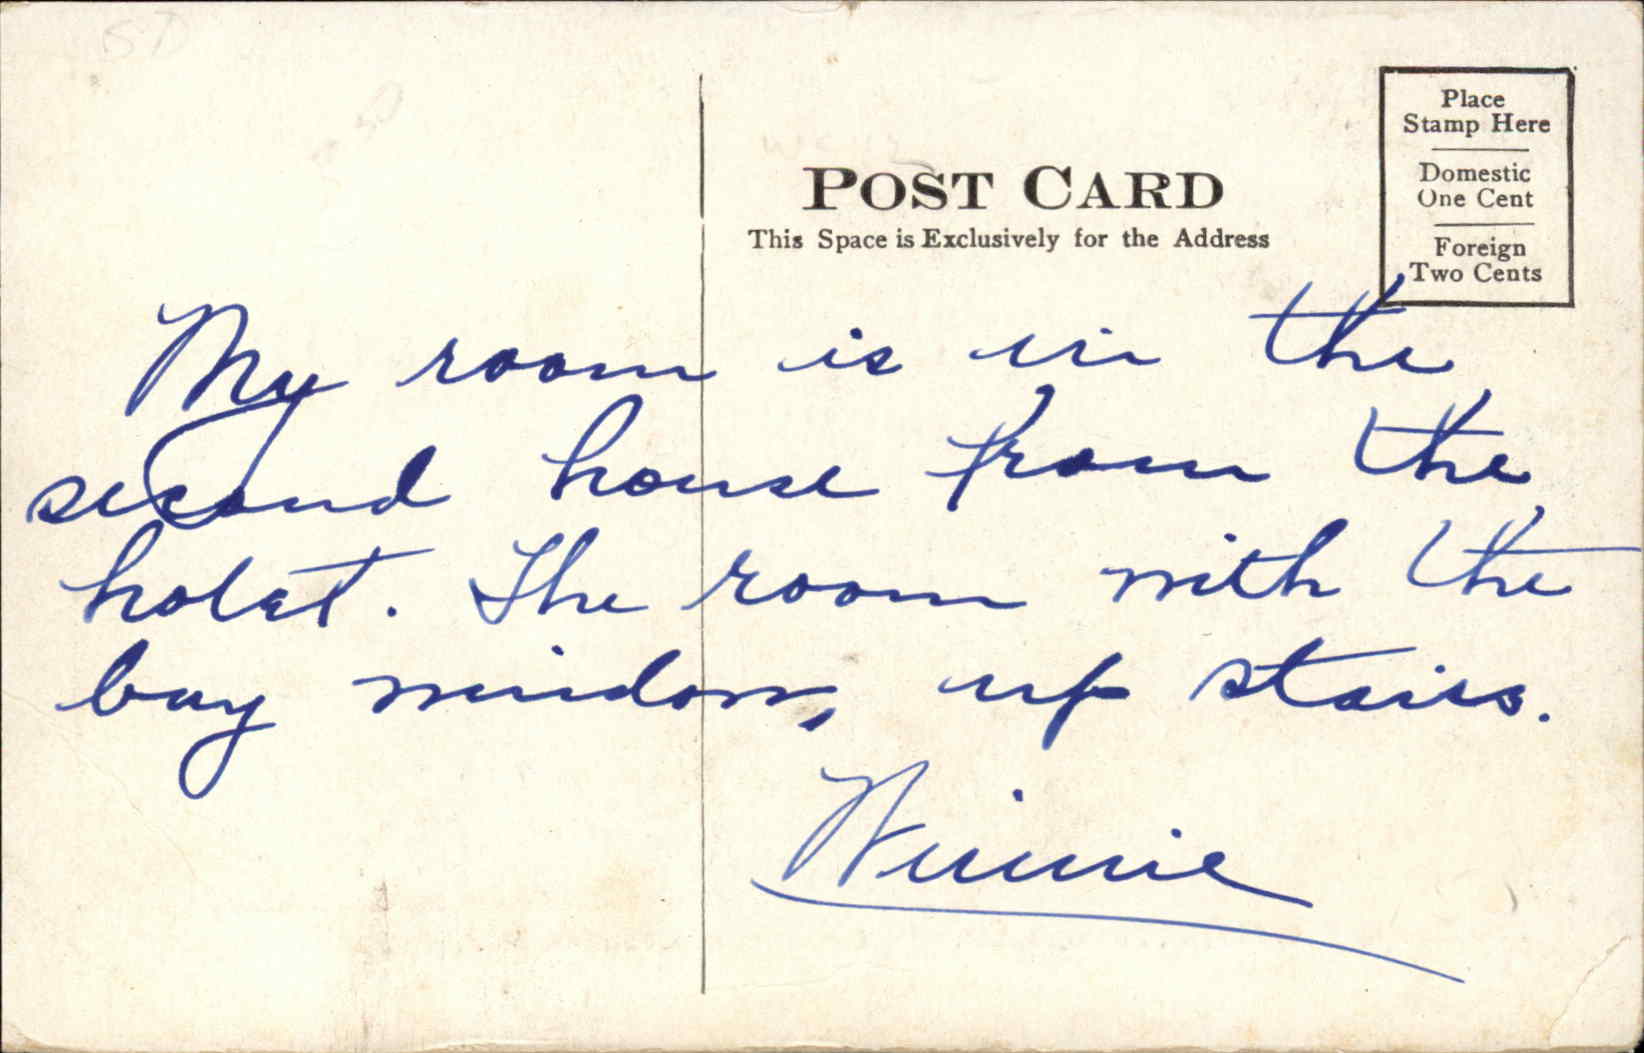 POST CARD
This Space is Exclusively for the Address
Place
Stamp Here
Domestic
One Cent
Foreign
Two Cents
My room is in the
second house from the
hotel. The room with the
bay window, up stairs.
Winnie